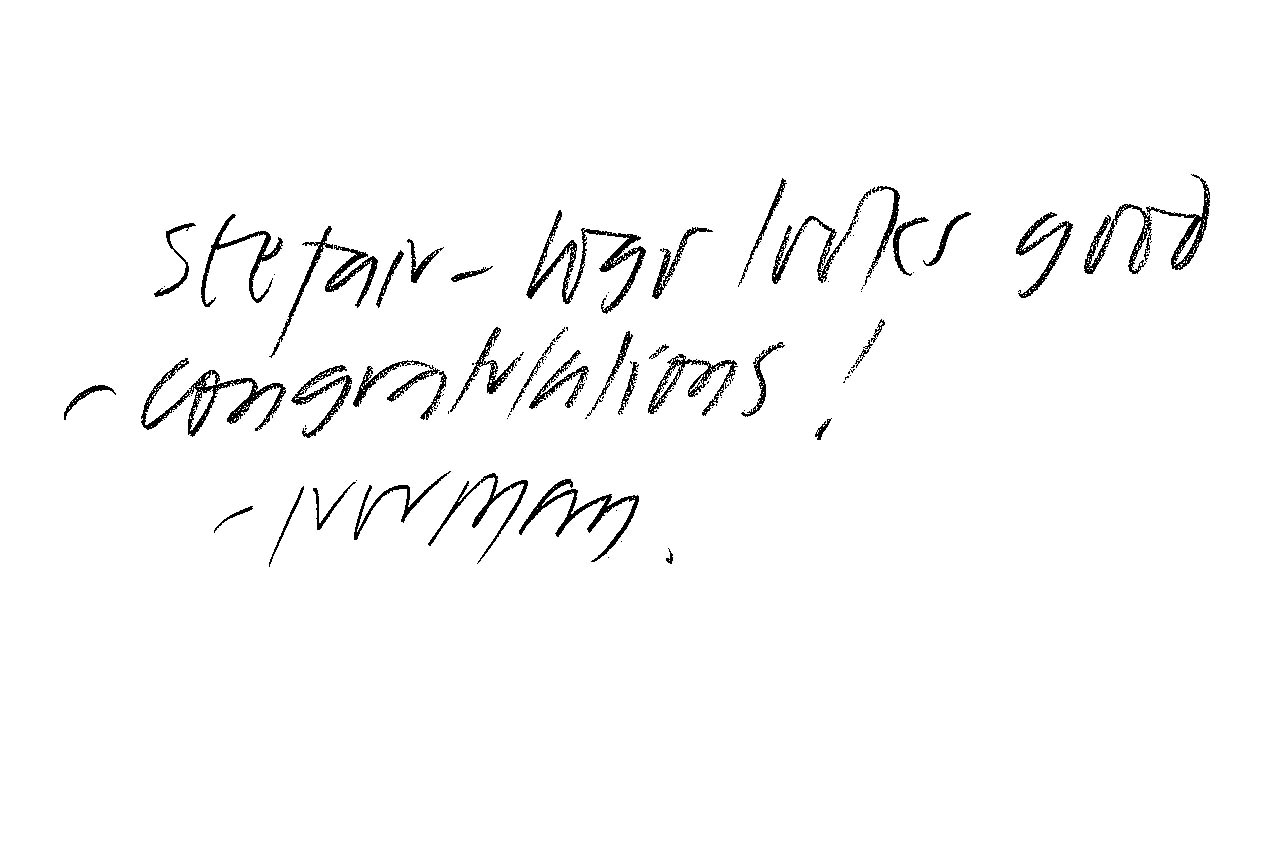 stefan - logo looks good
- congratulations!
- norman.